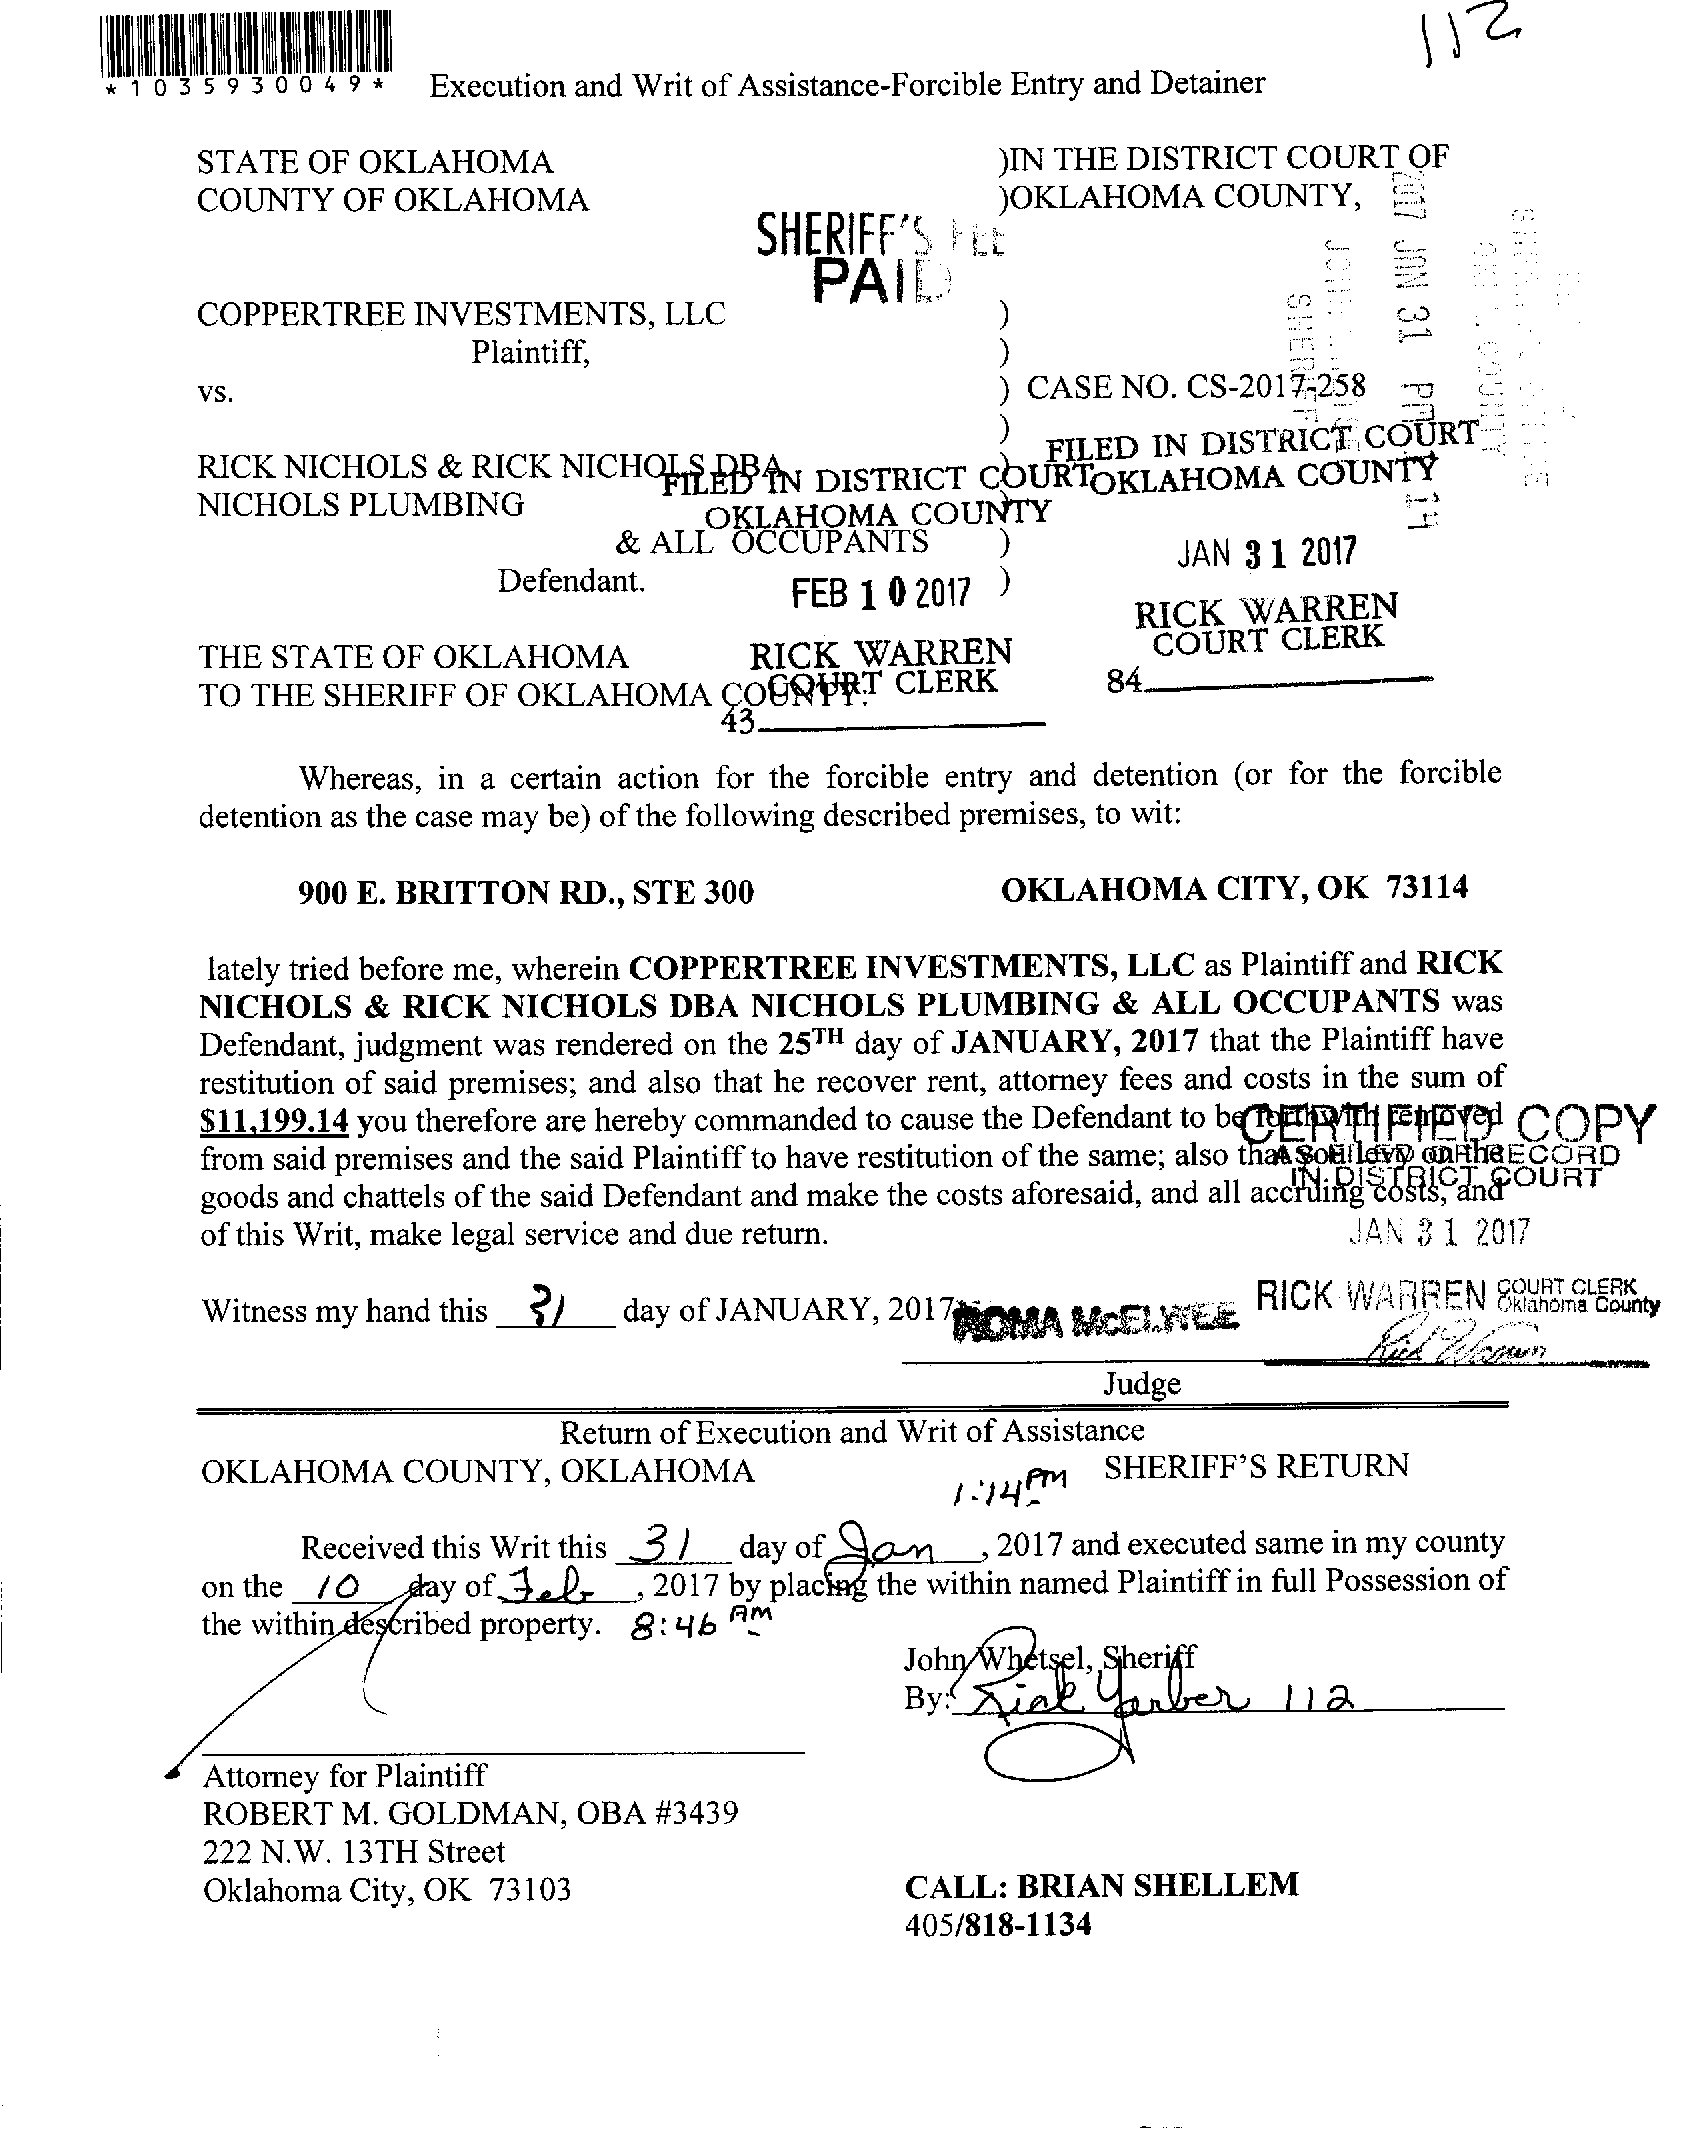 112
*1035930049*
Execution and Writ of Assistance-Forcible Entry and Detainer
STATE OF OKLAHOMA )IN THE DISTRICT COURT OF
COUNTY OF OKLAHOMA )OKLAHOMA COUNTY,
SHERIFF'S FEE
PAID
2017 JAN 31
COPPERTREE INVESTMENTS, LLC )
Plaintiff, )
vs. ) CASE NO. CS-2017-258
)
FILED IN DISTRICT COURT
OKLAHOMA COUNTY
JAN 31 2017
RICK WARREN
COURT CLERK
84
RICK NICHOLS & RICK NICHOLS DBA
NICHOLS PLUMBING
& ALL OCCUPANTS )
Defendant. )
FILED IN DISTRICT COURT
OKLAHOMA COUNTY
FEB 10 2017
RICK WARREN
COURT CLERK
43
THE STATE OF OKLAHOMA
TO THE SHERIFF OF OKLAHOMA COUNTY:
Whereas, in a certain action for the forcible entry and detention (or for the forcible
detention as the case may be) of the following described premises, to wit:
900 E. BRITTON RD., STE 300 OKLAHOMA CITY, OK 73114
lately tried before me, wherein COPPERTREE INVESTMENTS, LLC as Plaintiff and RICK
NICHOLS & RICK NICHOLS DBA NICHOLS PLUMBING & ALL OCCUPANTS was
Defendant, judgment was rendered on the 25TH day of JANUARY, 2017 that the Plaintiff have
restitution of said premises; and also that he recover rent, attorney fees and costs in the sum of
$11,199.14 you therefore are hereby commanded to cause the Defendant to be forthwith removed
from said premises and the said Plaintiff to have restitution of the same; also that you levy on the
goods and chattels of the said Defendant and make the costs aforesaid, and all accruing costs, and
of this Writ, make legal service and due return.
CERTIFIED COPY
AS FILED OF RECORD
IN DISTRICT COURT
JAN 31 2017
RICK WARREN COURT CLERK
Oklahoma County
Rick Warren
Witness my hand this 31 day of JANUARY, 2017
McELWEE
Judge
Return of Execution and Writ of Assistance
OKLAHOMA COUNTY, OKLAHOMA SHERIFF'S RETURN
1:14 PM
Received this Writ this 31 day of Jan, 2017 and executed same in my county
on the 10 day of Feb, 2017 by placing the within named Plaintiff in full Possession of
the within described property. 8:46 AM
John Whetsel, Sheriff
By: Rick Yarber 112
Attorney for Plaintiff
ROBERT M. GOLDMAN, OBA #3439
222 N.W. 13TH Street
Oklahoma City, OK 73103
CALL: BRIAN SHELLEM
405/818-1134